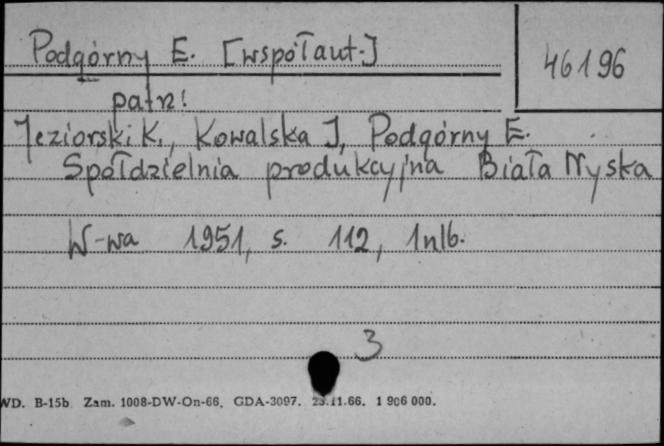 Podgórny E. [współaut.]
46196
patrz:
Jeziorski K., Kowalska J, Podgórny E.
Spółdzielnia produkcyjna Biała Nyska
W-wa 1951, s. 112, 1nlb.
3
WD. B-15b Zam. 1008-DW-On-66, GDA-3097. 23.11.66. 1 906 000.